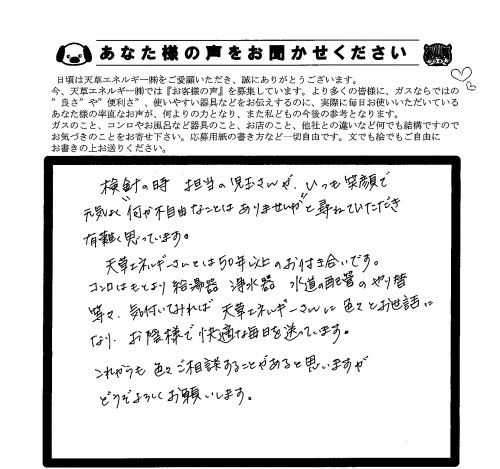 あなた様の声をお聞かせください
日頃は天草エネルギー㈱をご愛顧いただき、誠にありがとうございます。
今、天草エネルギー㈱では『お客様の声』を募集しています。より多くの皆様に、ガスならではの
"良さ"や"便利さ"、使いやすい器具などをお伝えするのに、実際に毎日お使いいただいている
あなた様の率直なお声が、何よりの力となり、また私どもの今後の参考となります。
ガスのこと、コンロやお風呂など器具のこと、お店のこと、他社との違いなど何でも結構ですので
お気づきのことをお寄せ下さい。応募用紙の書き方など一切自由です。文でも絵でもご自由に
お書きの上お送りください。
検針の時 担当の児玉さんが、いつも笑顔で
元気よく"何か不自由なことはありませんか"と尋ねていただき
有難く思っています。
天草エネルギーさんとは50年以上のお付き合いです。
コンロはもとより給湯器 浄水器 水道の配管のやり替
等々、気付いてみれば天草エネルギーさんに色々とお世話に
なり、お陰様で快適な毎日を送っています。
これからも色々ご相談することがあると思いますが
どうぞよろしくお願いします。